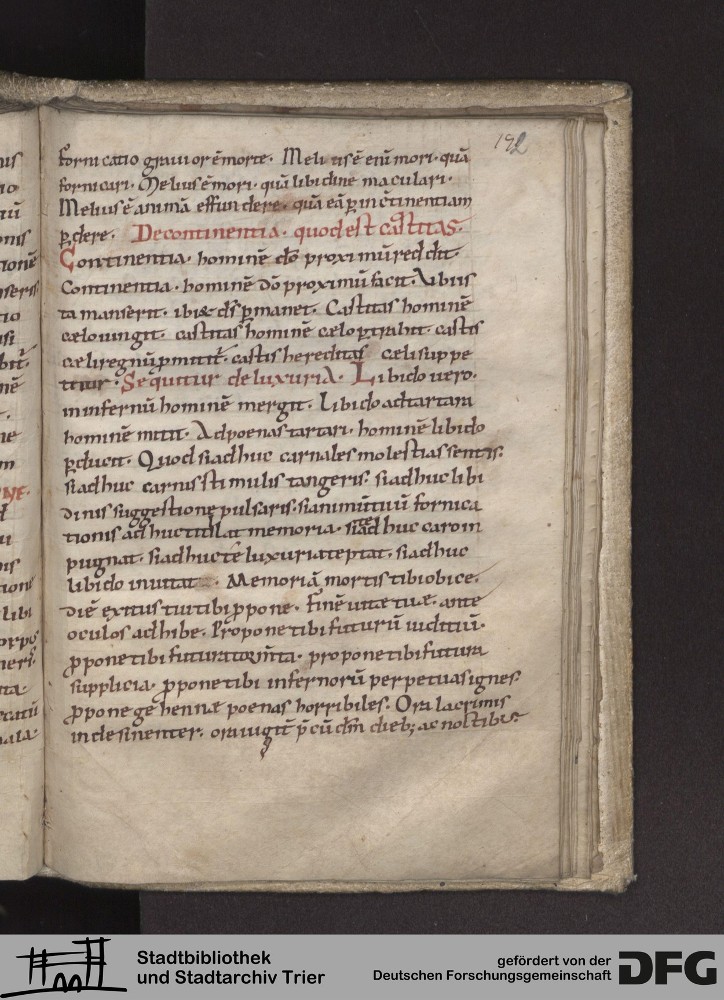 192
fornicatio grauior ē morte. Melius ē eni̅ mori. quā
fornicari. Melius ē mori. quā libidine maculari.
Melius ē animā effundere. quā eā ꝑ incōtinentiam
ꝑdere. De continentia. quod est castitas.
Continentia. hominē dō proximū reddit.
Continentia. hominē dō proximū facit. Vbi is
ta manserit. ibi & ds̄ ꝑmanet. Castitas hominē
cælo iungit. castitas hominē cælo ꝑtrahit. castis
cæli regnū ꝓmittit̄. castis hereditas cæli suppe
titur. Sequitur de luxuria. Libido uero.
in infernū hominē mergit. Libido ad tartara
hominē mittit. Ad poenas tartari. hominē libido
ꝑducit. Quod si adhuc carnales molestias sentis.
si adhuc carnis stimulis tangeris. si adhuc libi
dinis suggestione pulsaris. si animū tuū fornica
tionis adhuc titilat memoria. si te adhuc caro in
pugnat. si adhuc te luxuria teptat. si adhuc
libido inuitat. Memoriā mortis tibi obice.
diē exitus tui tibi ꝓpone. Finē uitæ tuæ. ante
oculos adhibe. Propone tibi futurū iuditiū.
ꝓpone tibi futura torm̄ta. propone tibi futura
supplicia. ꝓpone tibi infernorū perpetuas ignes.
ꝓpone gehennæ poenas horribiles. Ora lacrimis
indesinenter. ora iugit̄ ꝑ
Stadtbibliothek
und Stadtarchiv Trier
gefördert von der
Deutschen Forschungsgemeinschaft
DFG